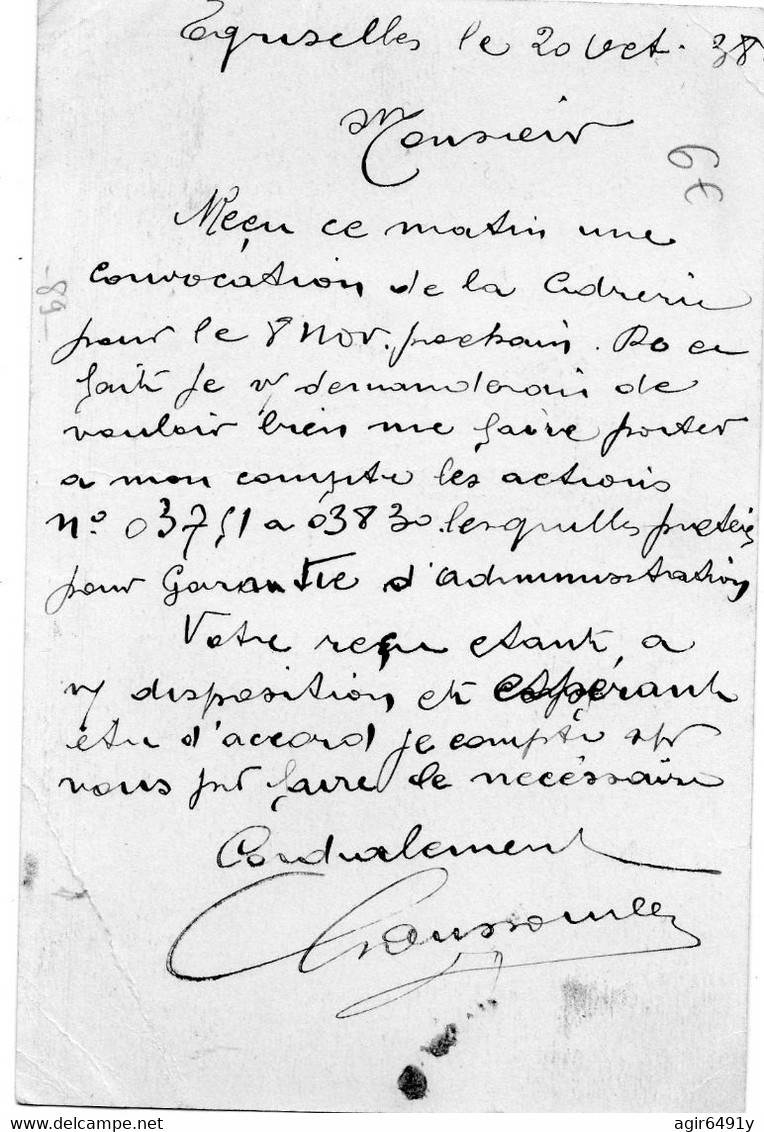 Egriselles le 20 Oct. 38
Monsieur
6€
Reçu ce matin une
convocation de la Cidrerie
89
pour le 8 Nov. prochain. De ce
fait je v/ demanderais de
vouloir bien me faire porter
a mon compte les actions
n° 03751 a 03830 lesquelles
pour Garantie d'administration
Votre reçu etant a
v/ disposition et espérant
être d'accord je compte sur
vous pr faire le necéssaire
Cordialement
delcampe.net
agir6491y